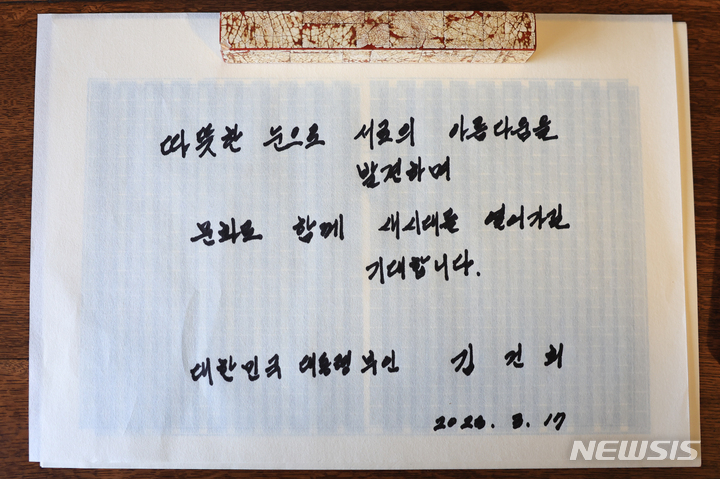 따뜻한 눈으로 서로의 아름다움을
발견하며
문화로 함께 새시대를 열어가길
기대합니다.
대한민국 대통령부인 김건희
3. 17
NEWSIS